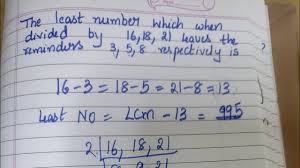 The least number which when
divided by 16, 18, 21 leaves the
reminders 3, 5, 8 respectively is ?
16-3 = 18-5 = 21-8 = 13
Least No = Lcm - 13 = 995
2 | 16, 18, 21
8 9 21